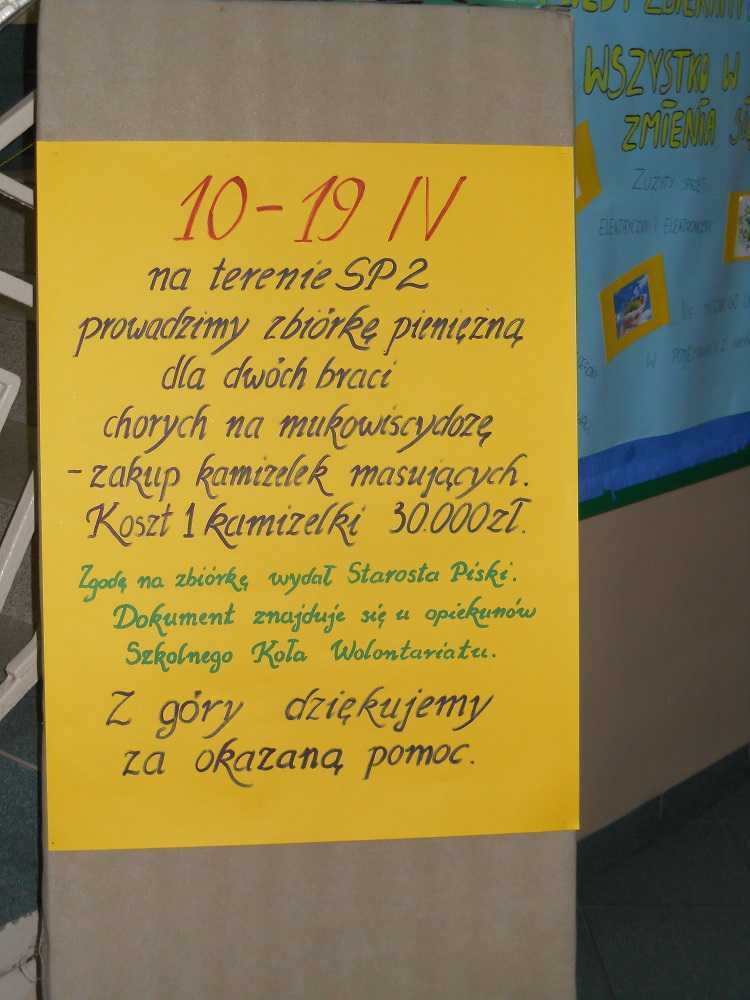 10-19 IV
na terenie SP2
prowadzimy zbiórkę pieniężną
dla dwóch braci
chorych na mukowiscydozę
- zakup kamizelek masujących.
Koszt 1 kamizelki 30.000zł.
Zgodę na zbiórkę wydał Starosta Piski.
Dokument znajduje się u opiekunów
Szkolnego Koła Wolontariatu.
Z góry dziękujemy
za okazaną pomoc.
WSZYSTKO W
ZMIENIA
ZUŻYTY SPRZĘT
ELEKTRYCZNY I ELEKTRONICZNY